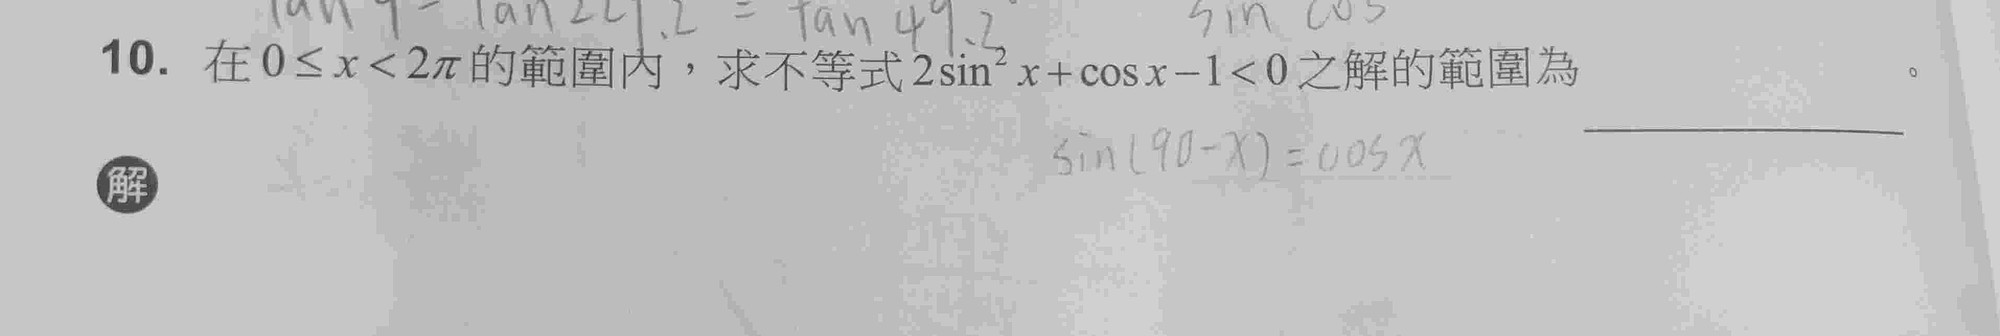 tan 9 = tan 229.2 = tan 49.2°   sin cos
10. 在 0 ≤ x < 2π 的範圍內，求不等式 2sin² x + cos x − 1 < 0 之解的範圍為＿＿＿＿＿＿。
sin(90-x) = cosx
解